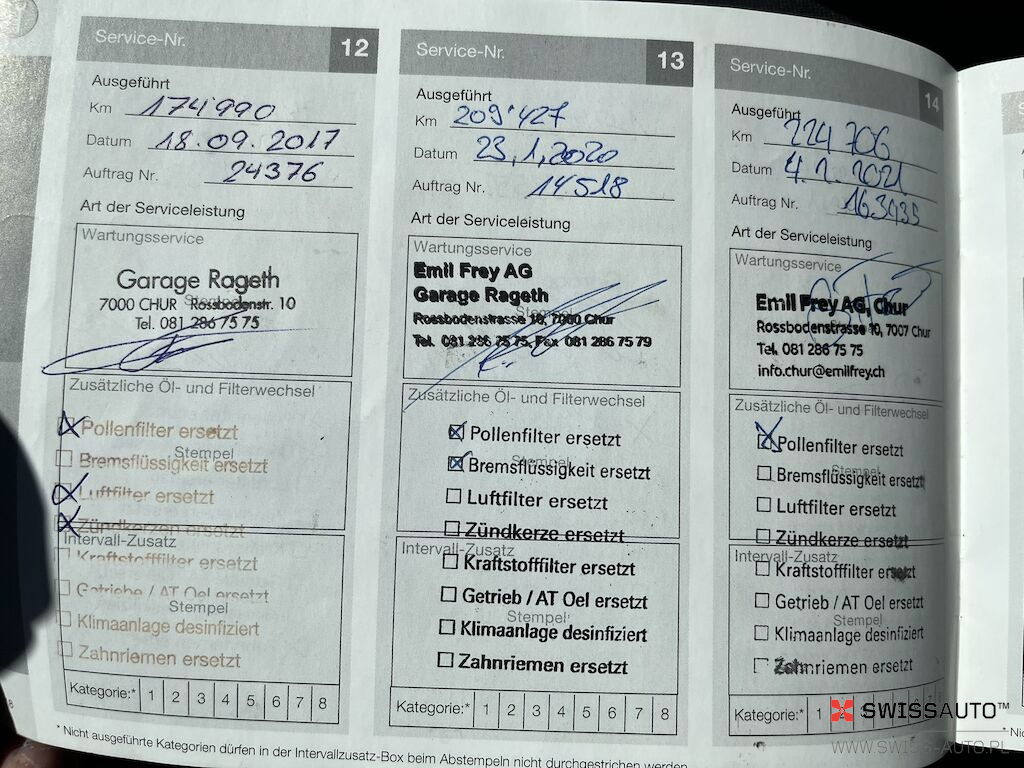 Service-Nr. 12
Ausgeführt
Km 174990
Datum 18.09.2017
Auftrag Nr. 24376
Art der Serviceleistung
Wartungsservice
Garage Rageth
7000 CHUR Rossbodenstr. 10
Tel. 081 286 75 75
Zusätzliche Öl- und Filterwechsel
Pollenfilter ersetzt
Stempel
Bremsflüssigkeit ersetzt
Luftfilter ersetzt
Zündkerzen ersetzt
Intervall-Zusatz
Kraftstofffilter ersetzt
Getriebe / AT Oel ersetzt
Stempel
Klimaanlage desinfiziert
Zahnriemen ersetzt
Kategorie:* 1 2 3 4 5 6 7 8
Service-Nr. 13
Ausgeführt
Km 209'427
Datum 23,1,2020
Auftrag Nr. 14518
Art der Serviceleistung
Wartungsservice
Emil Frey AG
Garage Rageth
Rossbodenstrasse 10, 7000 Chur
Tel. 081 286 75 75, Fax 081 286 75 79
Zusätzliche Öl- und Filterwechsel
Pollenfilter ersetzt
Stempel
Bremsflüssigkeit ersetzt
Luftfilter ersetzt
Zündkerze ersetzt
Intervall-Zusatz
Kraftstofffilter ersetzt
Getrieb / AT Oel ersetzt
Stempel
Klimaanlage desinfiziert
Zahnriemen ersetzt
Kategorie:* 1 2 3 4 5 6 7 8
Service-Nr. 14
Ausgeführt
Km 224706
Datum 4.2.2021
Auftrag Nr.
Art der Serviceleistung
Wartungsservice
Emil Frey AG, Chur
Rossbodenstrasse 10, 7007 Chur
Tel. 081 286 75 75
info.chur@emilfrey.ch
Zusätzliche Öl- und Filterwechsel
Pollenfilter ersetzt
Stempel
Bremsflüssigkeit ersetzt
Luftfilter ersetzt
Zündkerze ersetzt
Intervall-Zusatz
Kraftstofffilter ersetzt
Getrieb / AT Oel ersetzt
Stempel
Klimaanlage desinfiziert
Zahnriemen ersetzt
Kategorie:* 1
* Nicht ausgeführte Kategorien dürfen in der Intervallzusatz-Box beim Abstempeln nicht durchgestrichen werden
SWISSAUTO™
WWW.SWISS-AUTO.PL